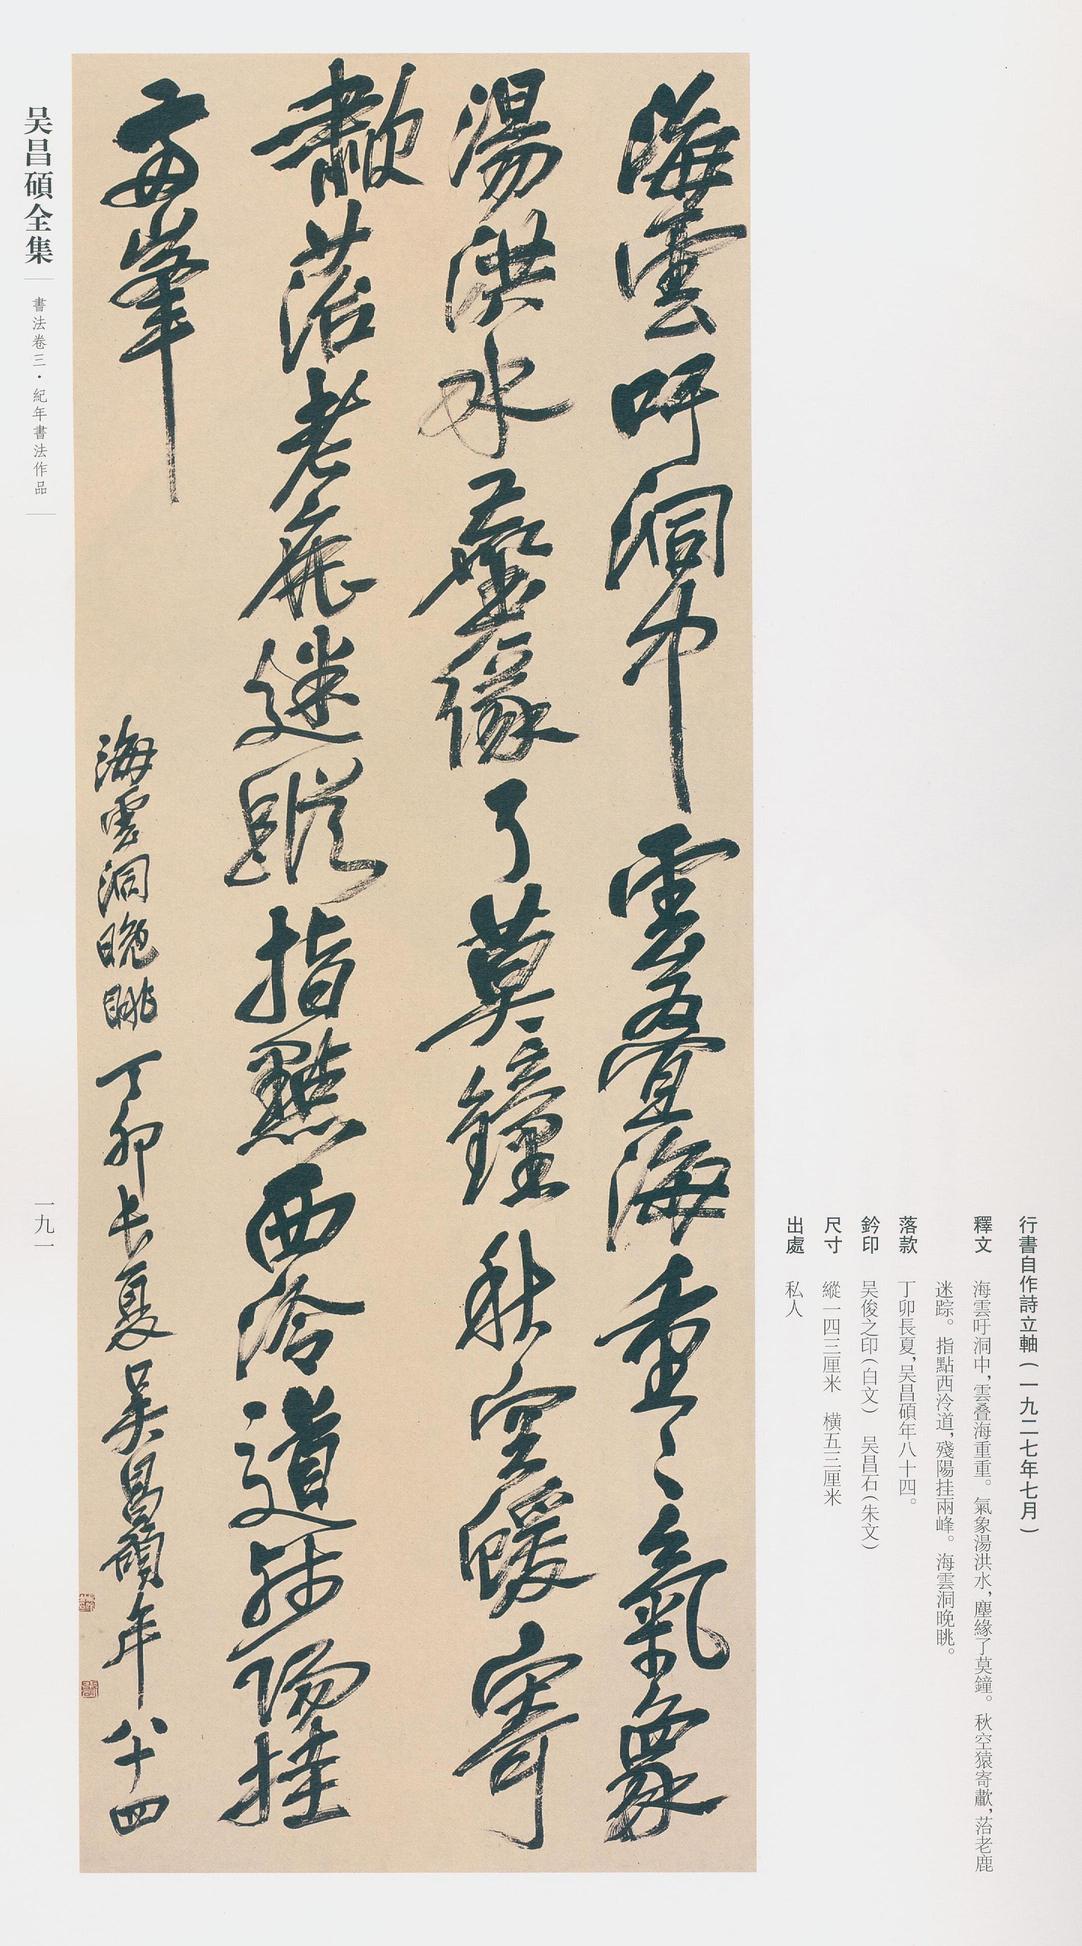 海雲吁洞中雲叠海重〻氣象
湯洪水塵緣了莫鐘秋空猨寄
歗落老鹿迷蹤指點西泠道殘陽挂
兩峯
海雲洞晚眺丁卯長夏吳昌碩年八十四
行書自作詩立軸(一九二七年七月)
釋文 海雲吁洞中,雲叠海重重。氣象湯洪水,塵緣了莫鐘。秋空猿寄歗,萿老鹿
迷踪。指點西泠道,殘陽挂兩峰。海雲洞晚眺。
落款 丁卯長夏,吴昌碩年八十四。
鈐印 吴俊之印(白文) 吴昌石(朱文)
尺寸 縱一四三厘米 橫五三厘米
出處 私人
吴昌碩全集
書法卷三·紀年書法作品
一九一